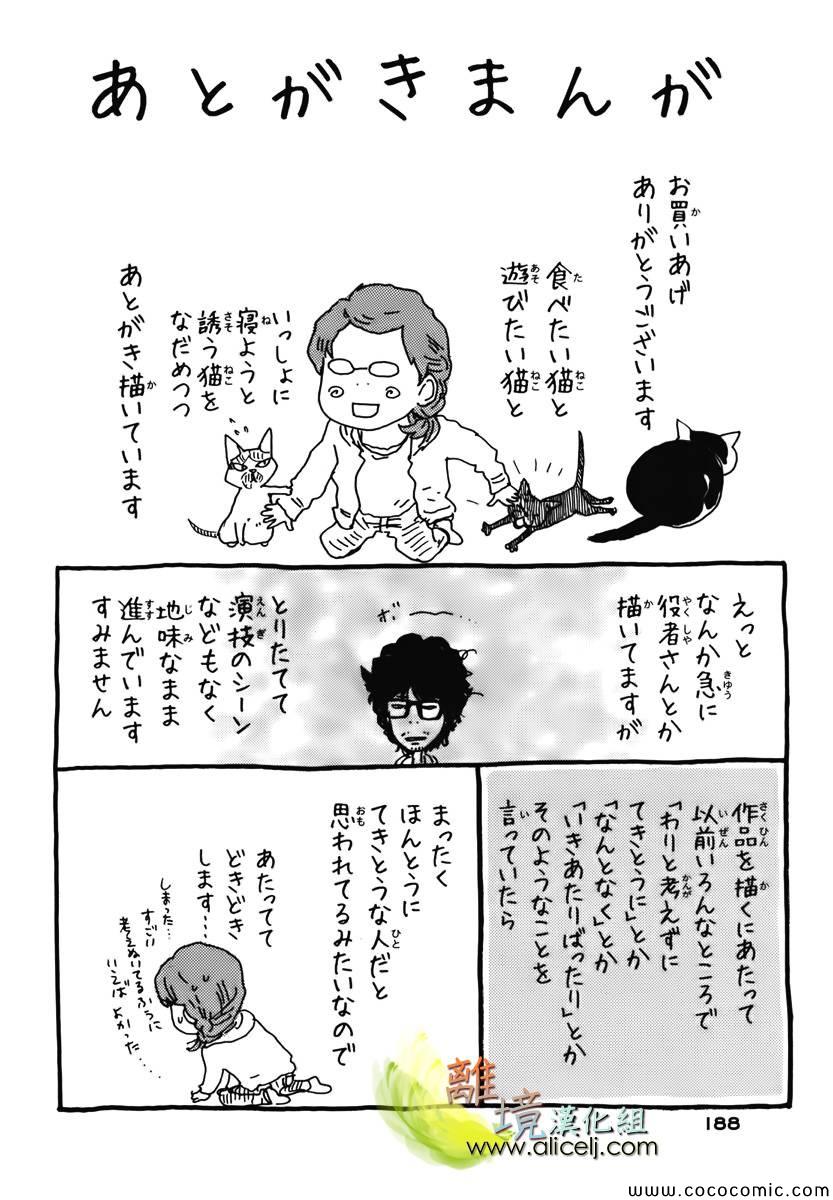 あとがきまんが
お買いあげ
ありがとうございます
食べたい猫と
遊びたい猫と
いっしょに
寝ようと
誘う猫を
なだめつつ
あとがき描いています
えっと
なんか急に
役者さんとか
描いてますが
ボー
とりたてて
演技のシーン
などもなく
地味なまま
進んでいます
すみません
作品を描くにあたって
以前いろんなところで
「わりと考えずに
てきとうに」とか
「なんとなく」とか
「いきあたりばったり」とか
そのようなことを
言っていたら
まったく
ほんとうに
てきとうな人だと
思われてるみたいなので
あたってて
どきどき
します…
しまった…
すごい
考えぬいてるふうに
いえば よかった…
188
離境漢化組
www.alicelj.com
www.cococomic.com